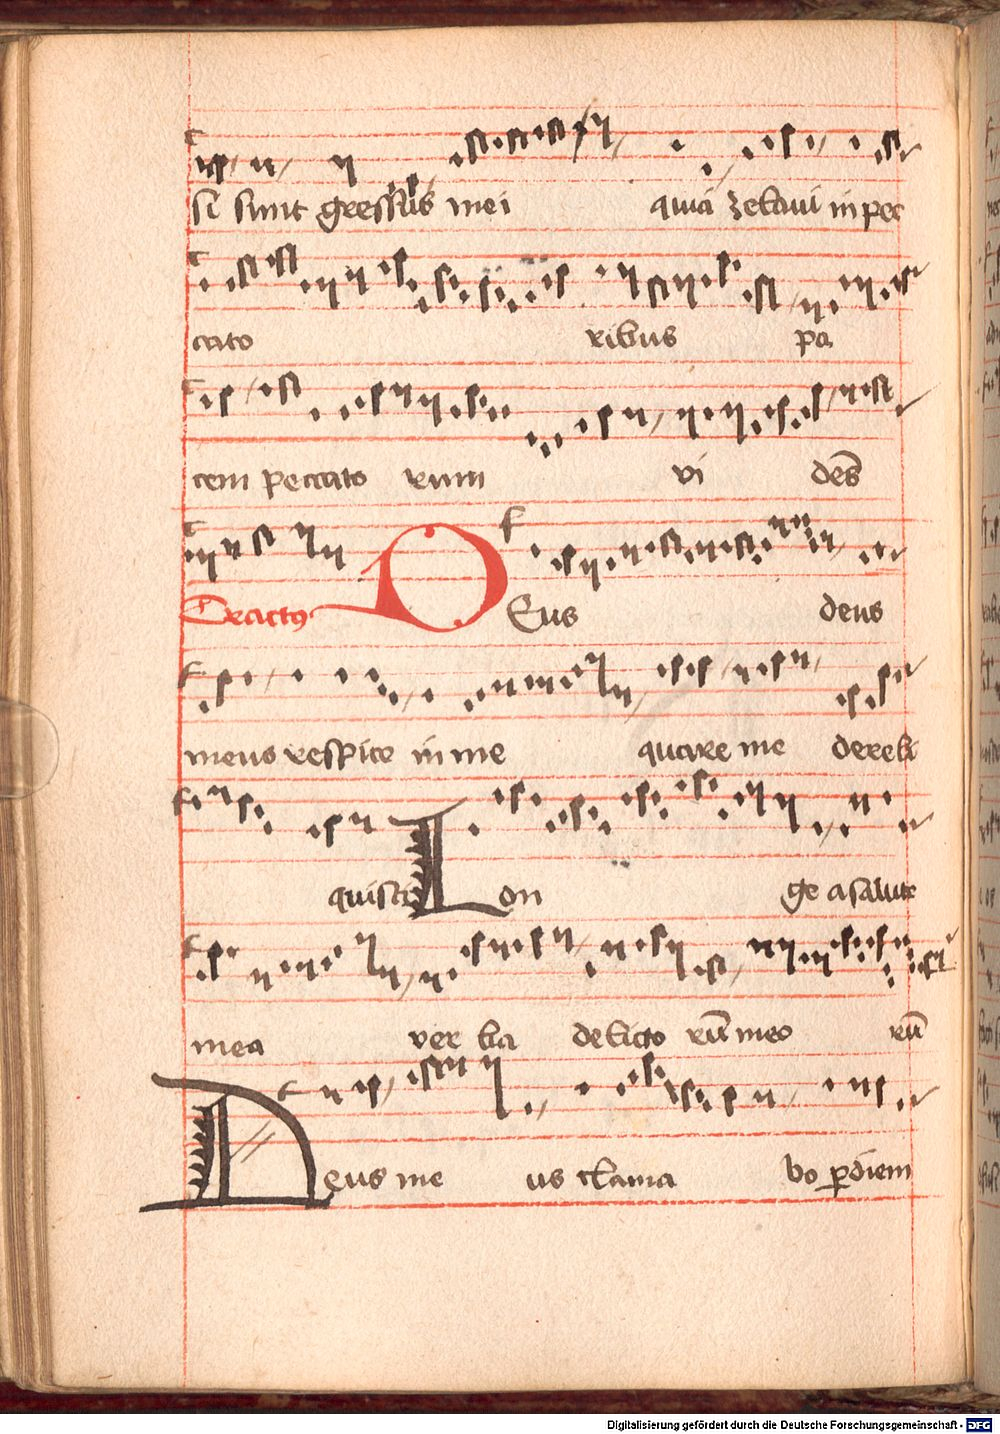 si sunt gressus mei quia zelavi in pec
cato ribus pa
cem peccato rum vi dēs
Tractus DEus deus
meus respice in me quare me dereli
quisti Lon ge a salute
mea ver ba delicto rū meo rū
Deus me us clama bo pdiem
Digitalisierung gefördert durch die Deutsche Forschungsgemeinschaft - DFG